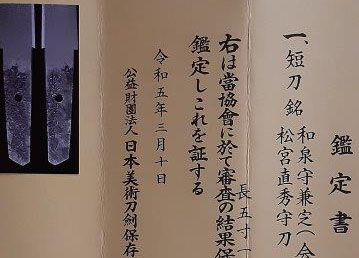 鑑定書
一、短刀 銘 和泉守兼定(会
松宮直秀守刀
長五寸一
右は當協會に於て審査の結果保
鑑定しこれを証する
令和五年三月十日
公益財團法人日本美術刀劍保存